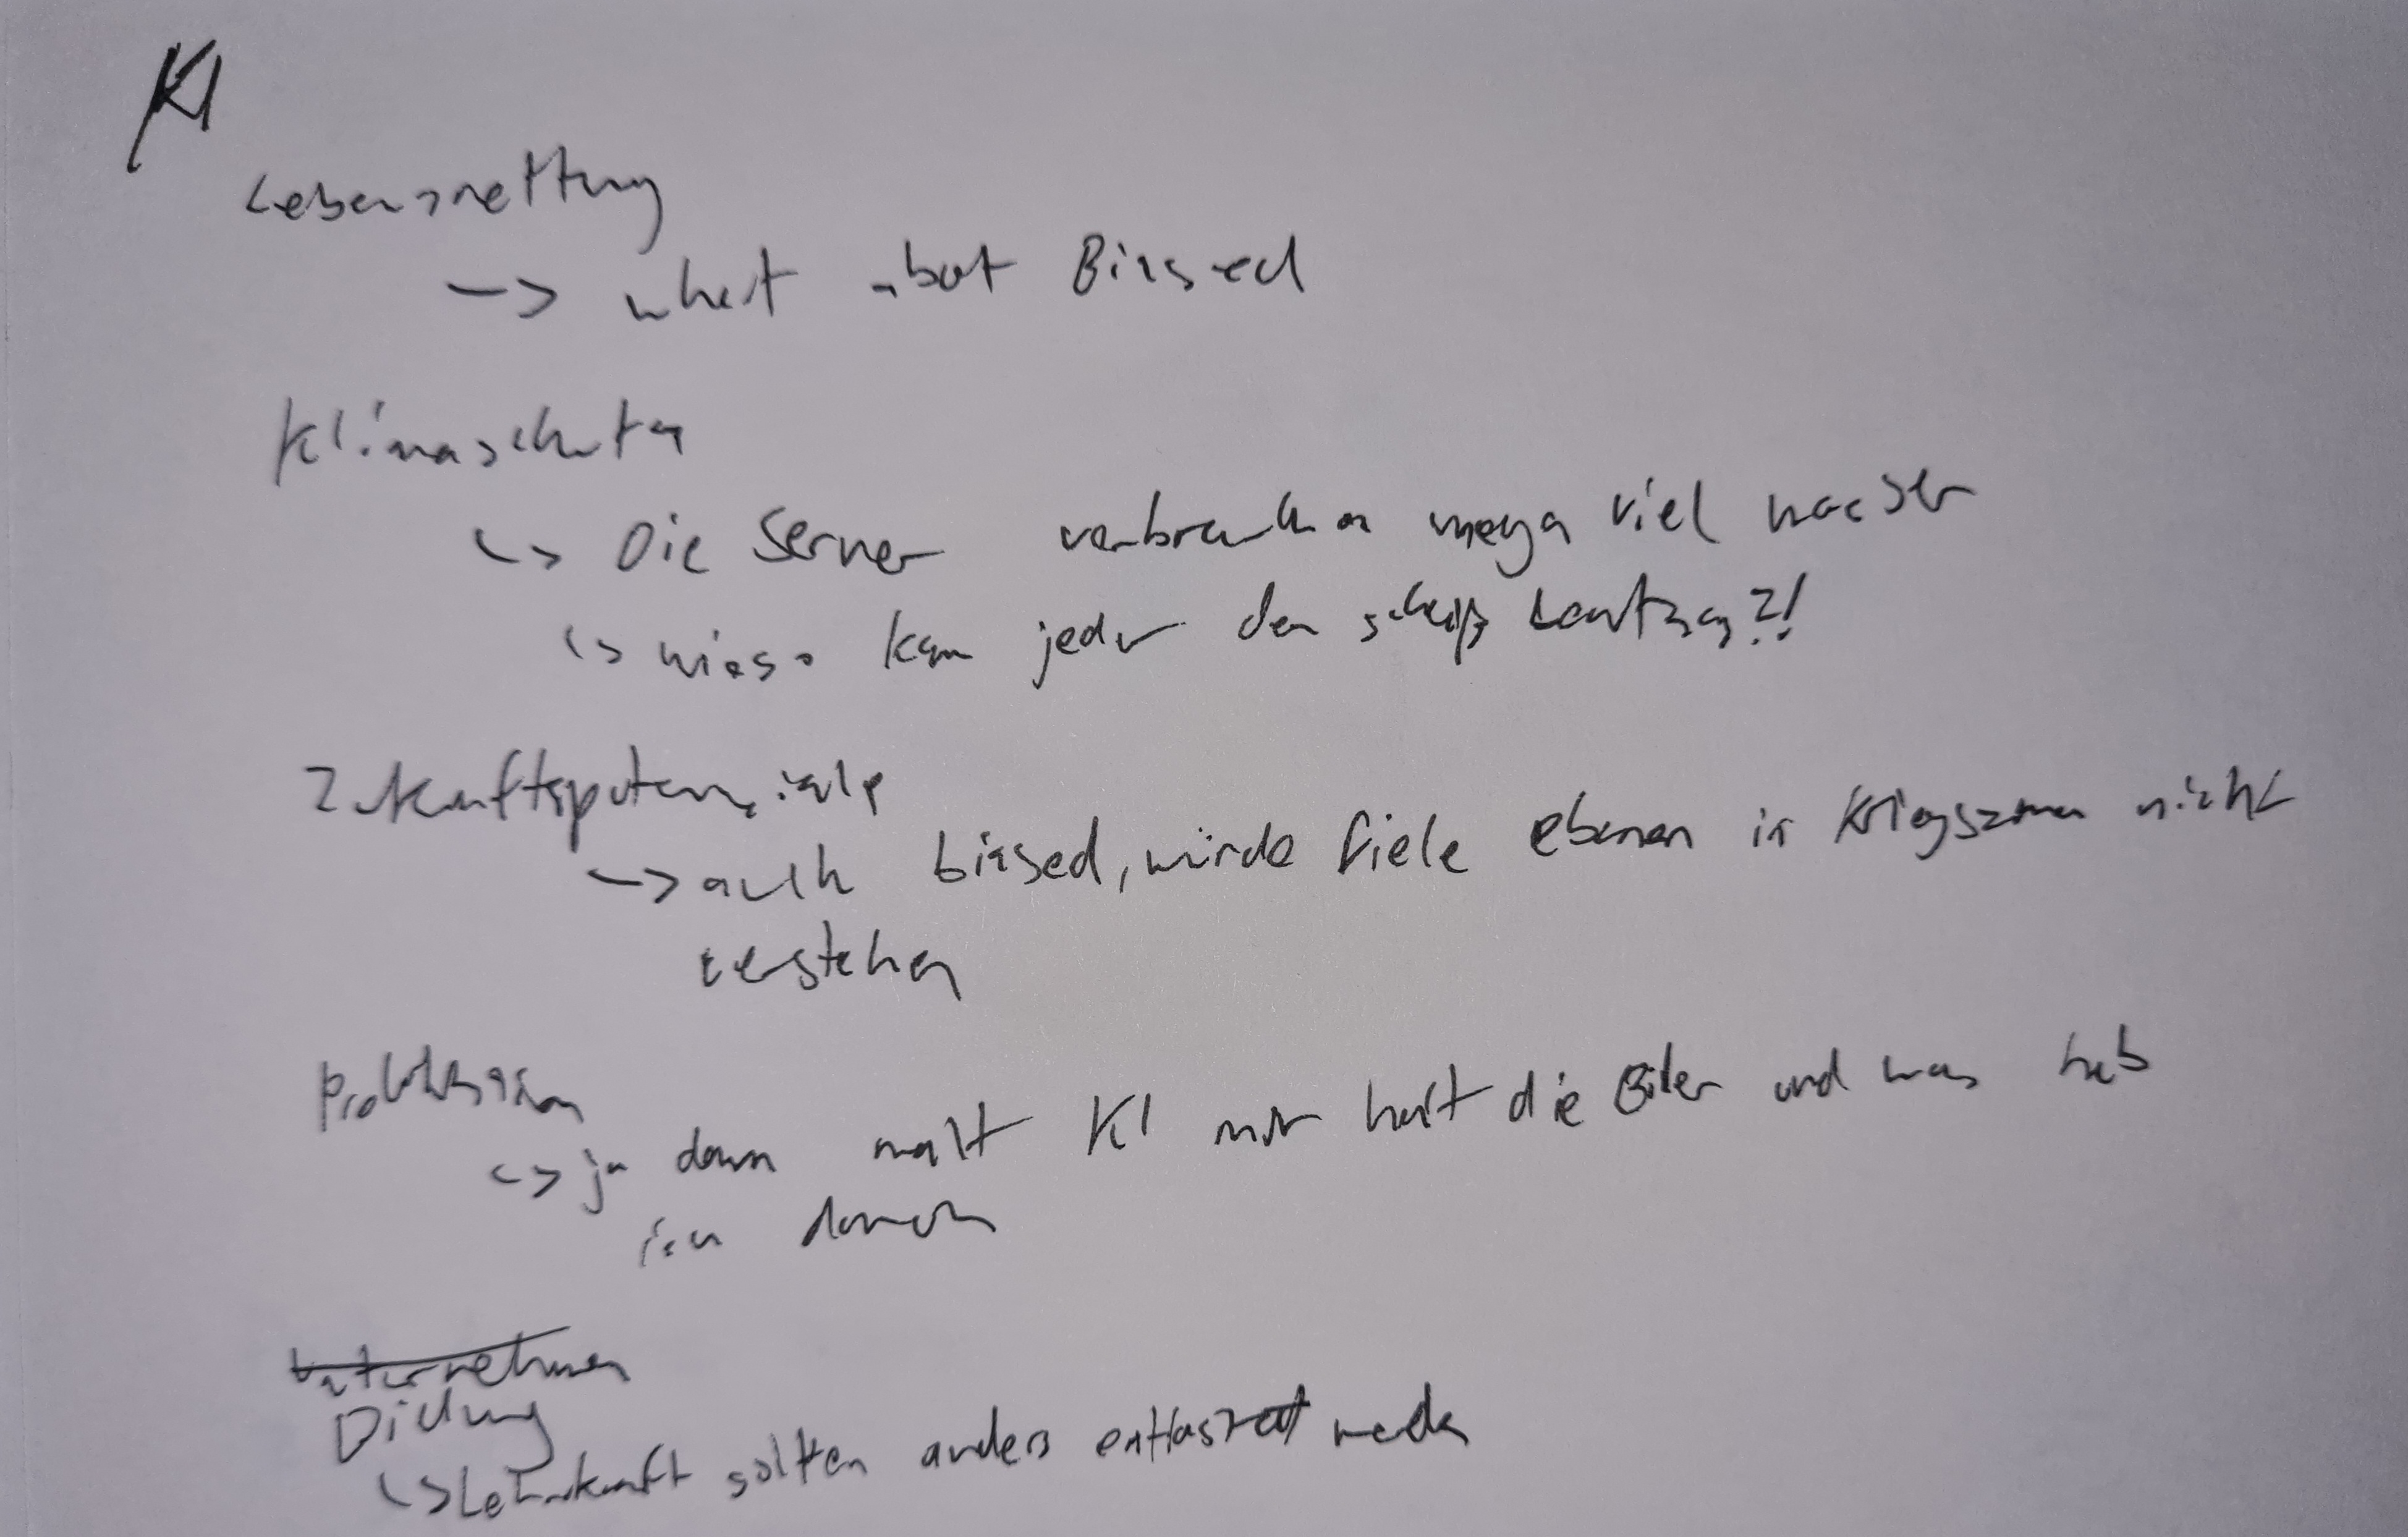 KI
Lebensrettung
-> what abot Biased
Klimaschutz
-> Die Server verbrauchen mega viel wasser
-> wieso kann jeder den scheiß benutzen?!
Zukunftspotenziale
-> auch biased, würde viele ebenen in nicht
verstehen
Produktion
-> ja dann malt KI mir halt die Bilder und was hab
ich davon
Unternehmen
Bildung
-> Lehrkraft sollten anders entlastet werden